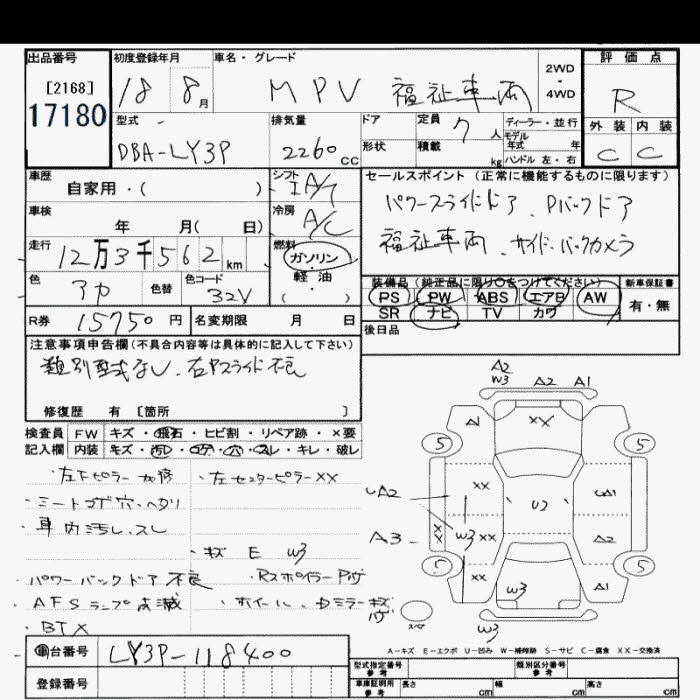 出品番号 初度登録年月 車名・グレード 2WD・4WD 評価点
[2168] 18 8月 MPV 福祉車両 R
17180
型式 排気量 ドア 定員 ディーラー・並行 外装 内装
DBA-LY3P 2260cc 形状 7人 積載 kg モデル年式 年式 ハンドル 左・右 C C
車歴 シフト セールスポイント(正常に機能するものに限ります)
自家用・( ) IA/T パワースライドドア、Pバックドア
車検 年 月( 日) 冷房 A/C 福祉車両、サイド、バックカメラ
走行 12万3千562km 燃料 ガソリン・軽油・( )
色 色替 色コード 32V
装備品(純正品に限り○をつけてください) 新車保証書
PS PW ABS エアB AW 有・無
SR ナビ TV カワ
R券 15750円 名変期限 月 日 後日品
注意事項申告欄(不具合内容等は具体的に記入して下さい)
類別型式なし、右Pスライド不良
修復歴 有 [箇所 ]
検査員 FW キズ・飛石・ヒビ割・リペア跡・×要
記入欄 内装 キズ・汚レ・コゲ・穴・スレ・キレ・破レ
・左Fピラー加修 ・左センターピラーXX
・シートコゲ穴・ヘタリ
・車内汚し、スレ
・キズ E W3
・パワーバックドア不良 ・Rスポイラー
・AFSランプ点滅 ・ホイール、ドミラーキズ
・BTX
A2
W3 A2 A1
A1 XX
5 5
UA2 XX U2 UA1
A3 XX W3 XX A2
5 5
XX W3 A1
スペア W3
A-キズ E-エクボ U-凹み W-補修跡 S-サビ C-腐食 XX-交換済
車台番号 LY3P-118400
登録番号
型式指定番号 参考 類別区分番号 参考
車庫証明用 参考 長さ cm 幅 cm 高さ cm